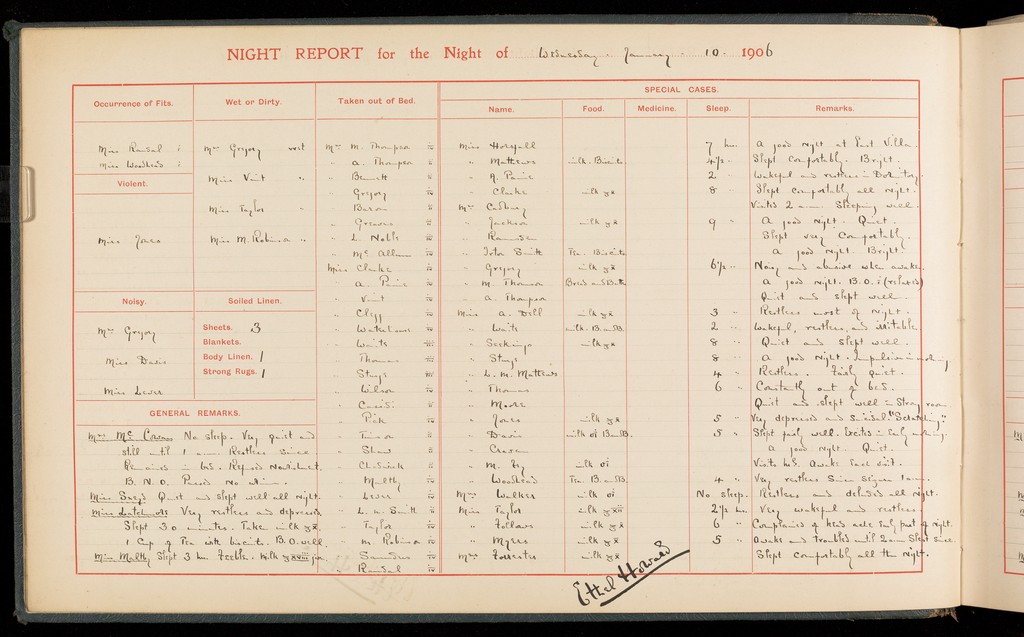 NIGHT REPORT for the Night of Wednesday. January. 10. 1906
Occurrence of Fits.
Miss Randal i
Miss Woodhead i
Violent.
Miss Jones
Noisy.
Mrs Gregory
Miss Davis
Miss Lever
Wet or Dirty.
Mrs Gregory wet
Miss Vint "
Miss Taylor "
Miss M. Robinson "
Soiled Linen.
Sheets. 3
Blankets.
Body Linen. 1
Strong Rugs. 1
GENERAL REMARKS.
Mrs Mc Cowan No sleep. Very quiet and
still until 1 a.m. Restless since
Remained in bed. Refused Nourishment.
B. N. O. Passed No urine.
Quiet and slept well all night.
Very restless and depressed
Slept 30 minutes. Taken milk
1 Cup of Tea with biscuits. B.O. well.
Miss Maltby Slept 3 hrs. Feeble. Milk
Taken out of Bed.
Mrs M. Thompson
" A. Thompson
" Bennett
" Gregory
" Bacon
" Greaves
" L. Noble
" Mc Allum
Miss Clarke
" A. Paine
" Vint
" Cliff
" Waterhouse
" Waits
" Thomas
" Stays
" Wilson
" Cassidi
" Pick
" Shaw
" Chadwick
" Maltby
" Lever
" L. M. Smith
" Taylor
" M. Robinson
" Saunders
" Randal
SPECIAL CASES.
Name. Food. Medicine. Sleep. Remarks.
Miss Horsfall 7 hrs. A good night at East Villa.
" Mathews milk. Biscuits 4½ " Slept Comfortably. Bright.
" A. Paine 2 " Wakeful and restless in Dormitory.
" Clarke milk 8 " Slept comfortably all night.
Mrs Cadbury Visited 2 a.m. Sleeping well.
" Jackson milk 9 " A good night. Quiet.
" Ramsden Slept very Comfortably.
" Iota Smith Tea. Biscuits A good night. Bright.
" Gregory milk 6½ " Noisy and abusive when awake.
" M. Thomson Bread and Butter A good night. B.O. i (relaxed)
" A. Thompson Quiet and slept well.
Miss A. Dell milk 3 " Restless most of night.
" Waits milk. B. and B. 2 " Wakeful, restless, and irritable
" Seckings milk 8 " Quiet and slept well.
" Stays 8 " A good night. Impulsive in morning
" L. M. Mathews 4 " Restless. Fairly quiet.
" Thomas 6 " Constantly out of bed.
" Moore Quiet and slept well in Strong room.
" Jones milk 5 " Very depressed and Suicidal. "Scratching."
" Davis milk B. and B. 5 " Slept fairly well. Excited in Early morning.
" Craven A good night. Quiet.
" M. Fry milk Visited hrs. Awake Each visit.
" Woodhead Tea. B. and B. 4 " Very restless Since 1 a.m.
Mrs Walker milk No sleep. Restless and deluded all night.
Miss Taylor milk 2½ hrs Very wakeful and restless.
" Fellows milk 6 " Complained of head ache Early part of night.
" Myers milk 5 " Awake and troubled until 2 a.m. Slept since
Mrs Forrester milk Slept comfortably all the night.
Ethel Howard